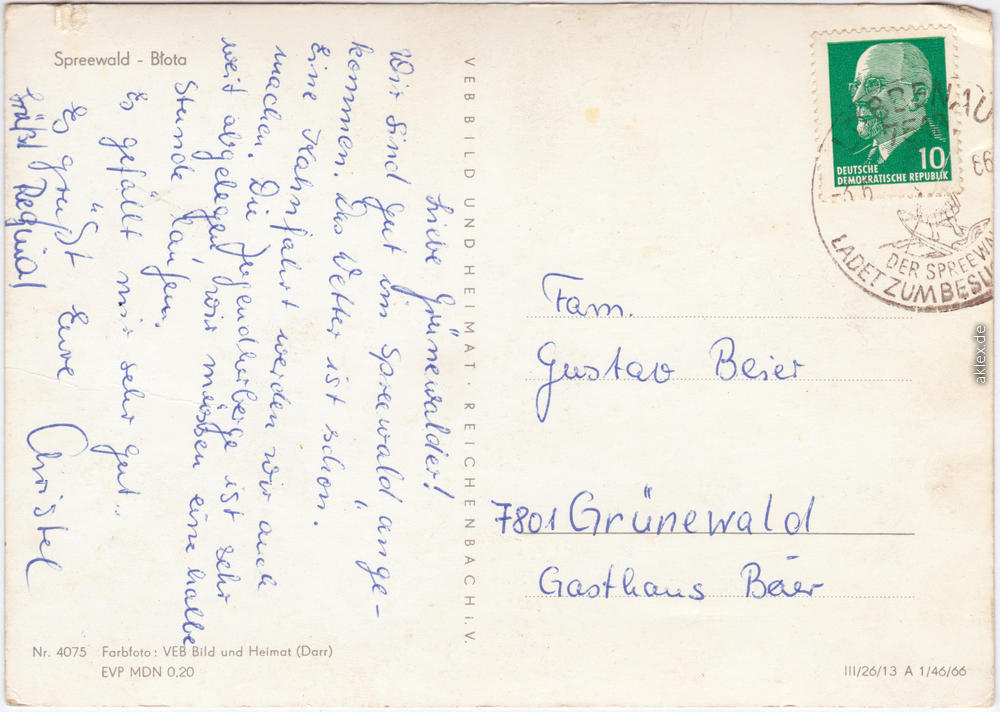 Spreewald - Błota
Liebe Grünewalder!
Wir sind gut im Spreewald ange-
kommen. Das Wetter ist schön.
Eine Kahnfahrt werden wir auch
machen. Die Jugendherberge ist sehr
weit abgelegen, wir müssen eine halbe
Stunde laufen.
Es gefällt mir sehr gut.
Es grüßt Eure
Christel
Grüßt Regina!
VEB BILD UND HEIMAT · REICHENBACH i. V.
DEUTSCHE
DEMOKRATISCHE REPUBLIK
10
66
DER SPREEWA
LADET ZUM BESU
Fam.
Gustav Beier
7801 Grünewald
Gasthaus Beier
Nr. 4075 Farbfoto: VEB Bild und Heimat (Darr)
EVP MDN 0,20
III/26/13 A 1/46/66
aklex.de